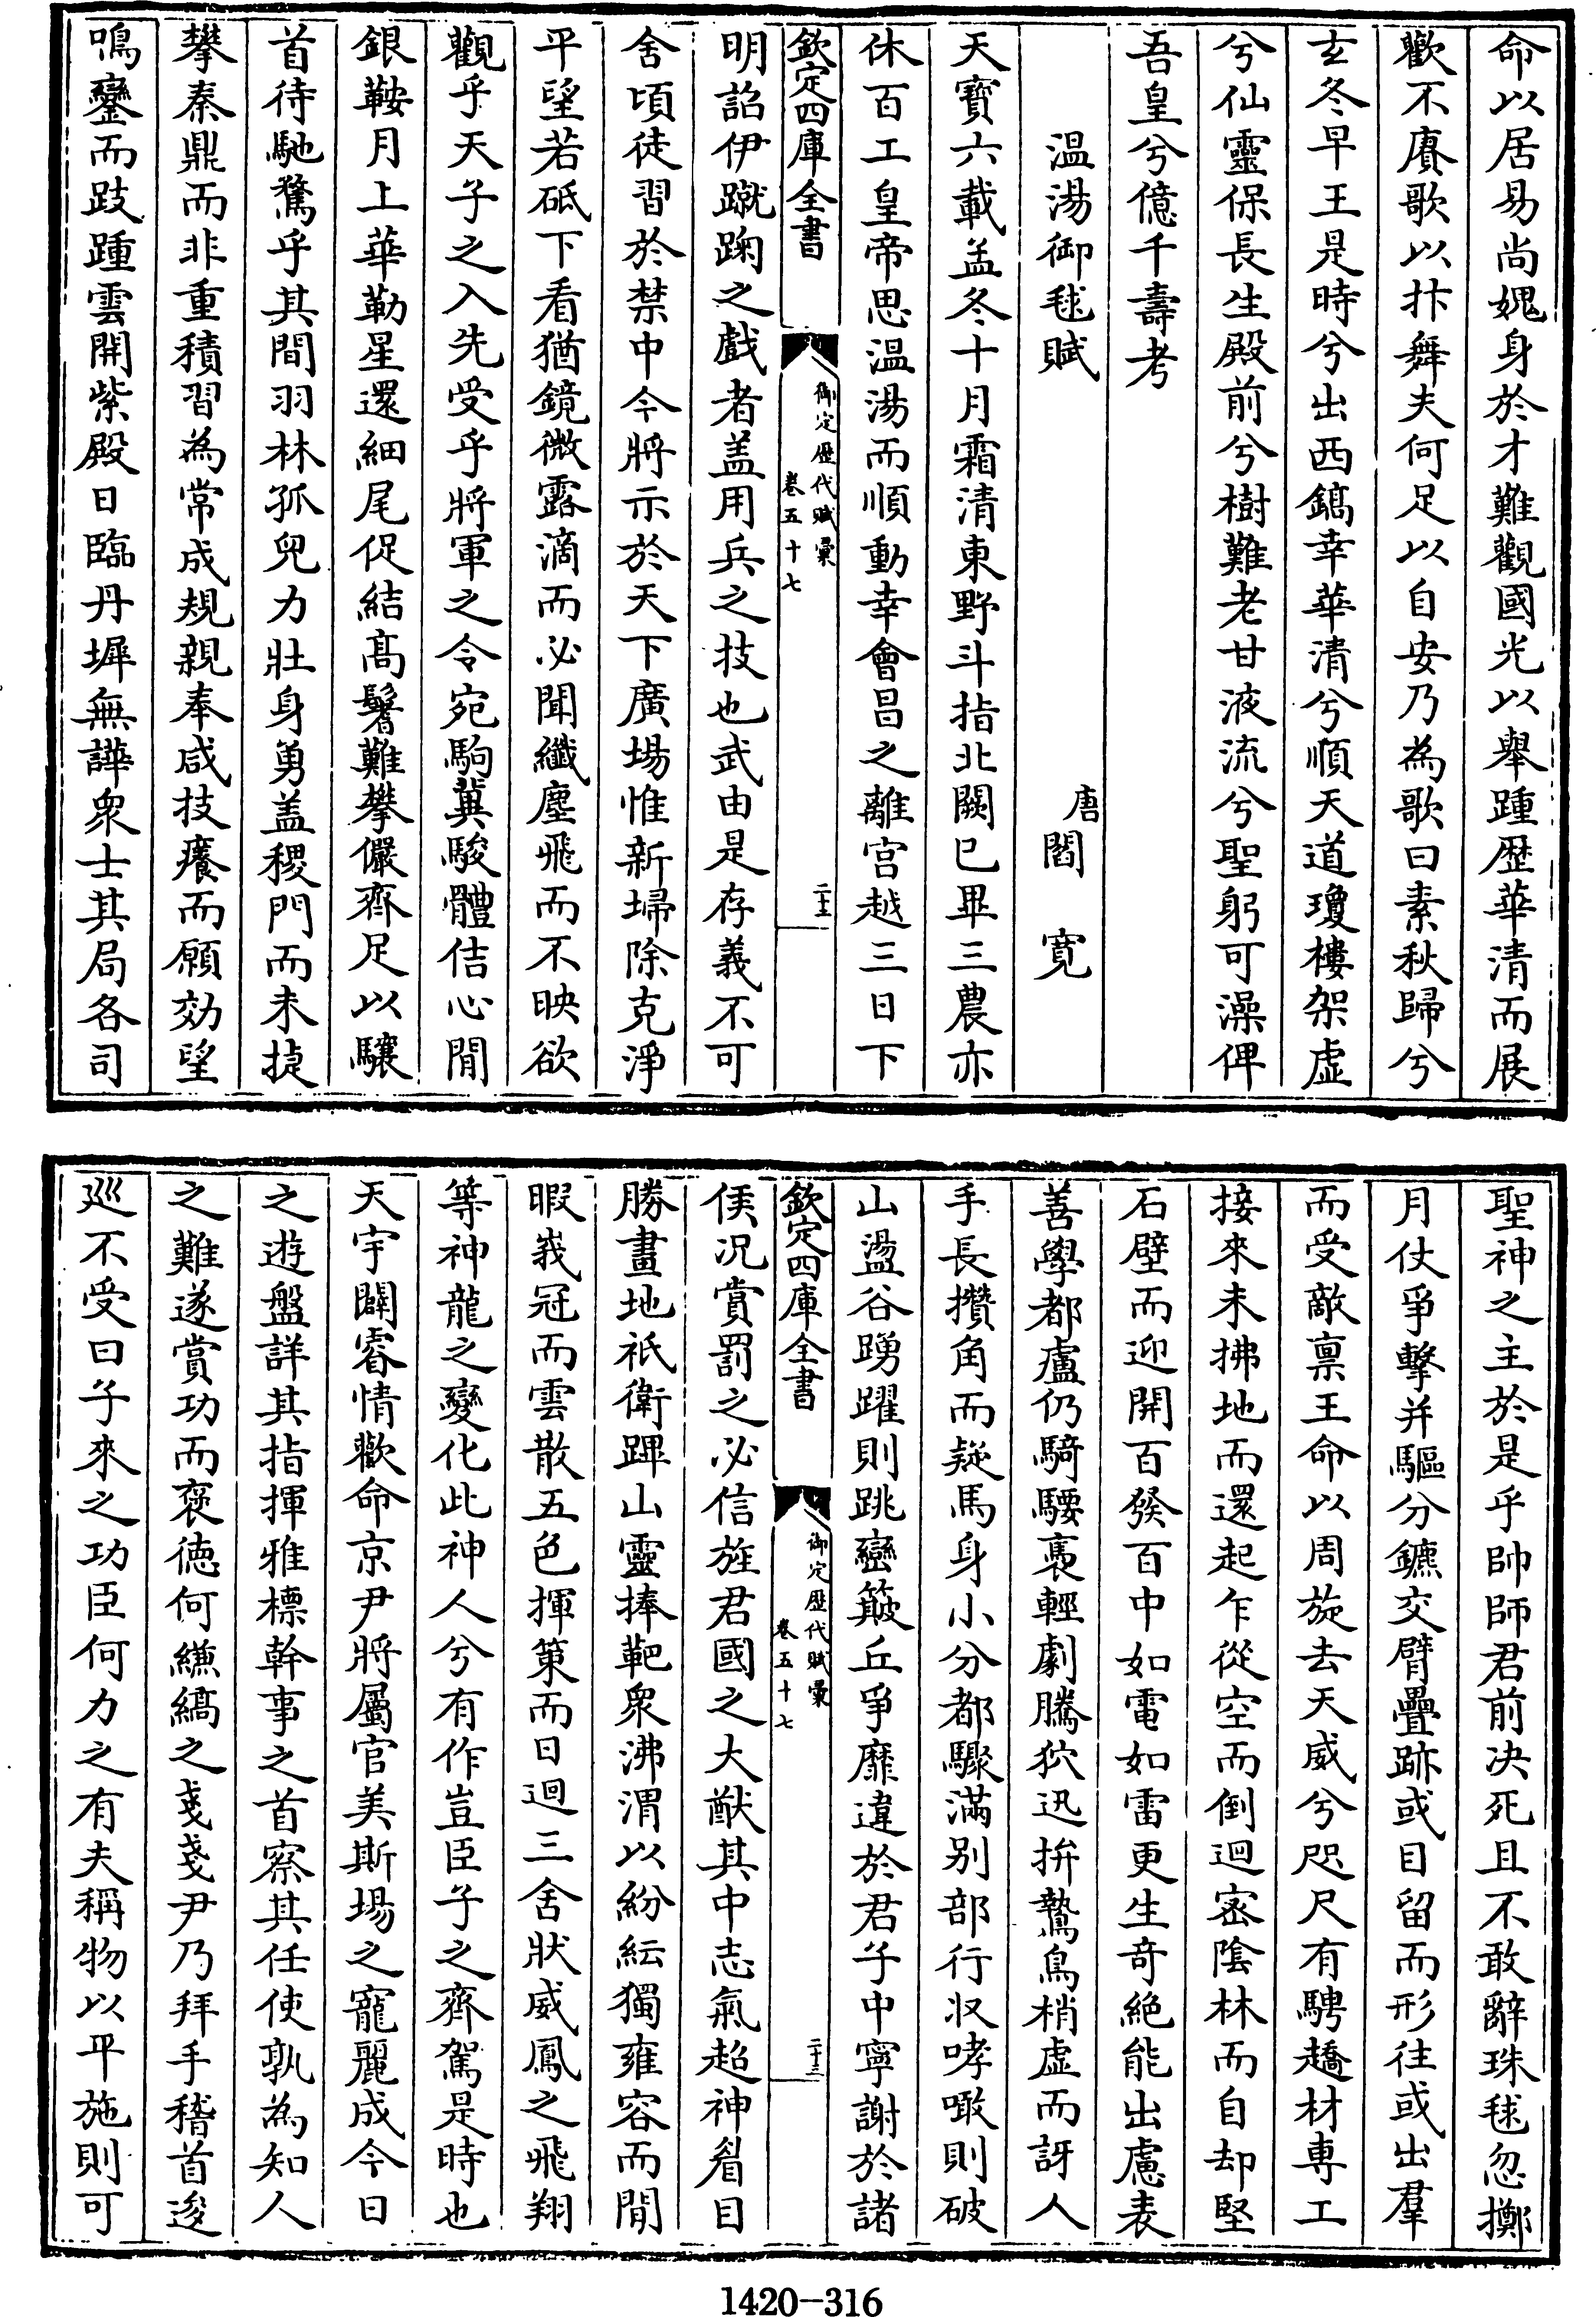 命以居易尚媿身於才難觀國光以舉踵歴華清而展
歡不賡歌以抃舞夫何足以自安乃為歌曰素秋歸兮
玄冬早王是時兮出西鎬幸華清兮順天道瓊樓架虛
兮仙靈保長生殿前兮樹難老甘液流兮聖躬可澡俾
吾皇兮億千壽考
溫湯御毬賦
唐閻寛
天寶六載孟冬十月霜清東野斗指北闕已畢三農亦
休百工皇帝思溫湯而順動幸會昌之離宮越三日下
欽定四庫全書
御定歴代賦彙
卷五十七
二十三
明詔伊蹴踘之戲者盖用兵之技也武由是存義不可
舍頃徒習於禁中今將示於天下廣場惟新埽除克淨
平望若砥下看猶鏡微露滴而必聞纖塵飛而不映欲
觀乎天子之入先受乎將軍之令宛駒冀駿體佶心閒
銀鞍月上華勒星還細尾促結髙鬐難攀儼齊足以驤
首待馳騖乎其間羽林孤兒力壯身勇盖稷門而未捷
攀秦鼎而非重積習為常成規親奉咸技癢而願効望
鳴鑾而跂踵雲開紫殿日臨丹墀無譁衆士其局各司
聖神之主於是乎帥師君前决死且不敢辭珠毬忽擲
月仗爭擊并驅分鑣交臂疊跡或目留而形往或出羣
而受敵禀王命以周旋去天威兮咫尺有騁趫材專工
接來未拂地而還起乍從空而倒迴密陰林而自却堅
石壁而迎開百發百中如電如雷更生奇絶能出慮表
善學都盧仍騎騕褭輕劇騰狖迅拚鷙鳥梢虛而訝人
手長攢角而疑馬身小分都驟滿别部行収哮噉則破
山盪谷踴躍則跳巒簸丘爭靡違於君子中寧謝於諸
欽定四庫全書
御定歴代賦彙
卷五十七
二十三
侯况賞罰之必信旌君國之大猷其中志氣超神眉目
勝畫地祇衛蹕山靈捧靶衆沸渭以紛紜獨雍容而閒
暇峩冠而雲散五色揮策而日迴三舍狀威鳳之飛翔
等神龍之變化此神人兮有作豈臣子之齊駕是時也
天宇闢睿情歡命京尹將屬官美斯場之寵麗成今日
之遊盤詳其指揮雅標幹事之首察其任使孰為知人
之難遂賞功而褒徳何縑縞之戔戔尹乃拜手稽首逡
巡不受曰子來之功臣何力之有夫稱物以平施則可
1420-316